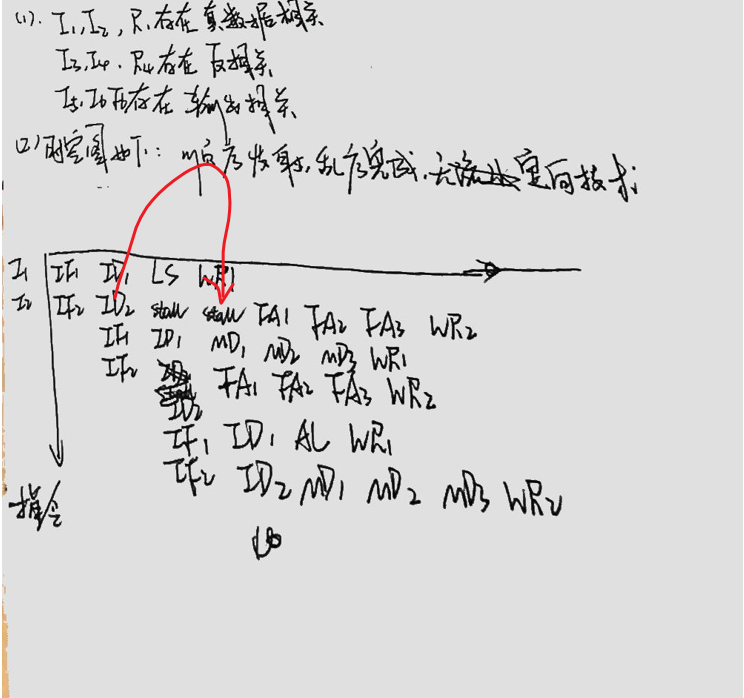 (1). I1,I2,R1存在真数据相关
I3,I4. R4存在反相关
I5,I6 存在输出相关
(2)时空图如下: 顺序发射,乱序完成.无定向技术
I1 IF1 ID1 LS WR1
I2 IF2 ID2 stall stall FA1 FA2 FA3 WR2
IF1 ID1 MD1 MD2 MD3 WR1
IF2 ID2 FA1 FA2 FA3 WR2
IF1 ID1 AL WR1
IF2 ID2 MD1 MD2 MD3 WR2
指令